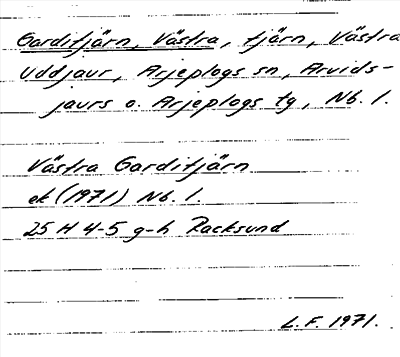 Garditjärn, Västra, tjärn, Västra
Uddjaur, Arjeplogs sn, Arvids-
jaurs o. Arjeplogs tg, Nb. l.
Västra Garditjärn
ek (1971) Nb. l.
25 H 4-5 g-h Racksund
L.F. 1971.